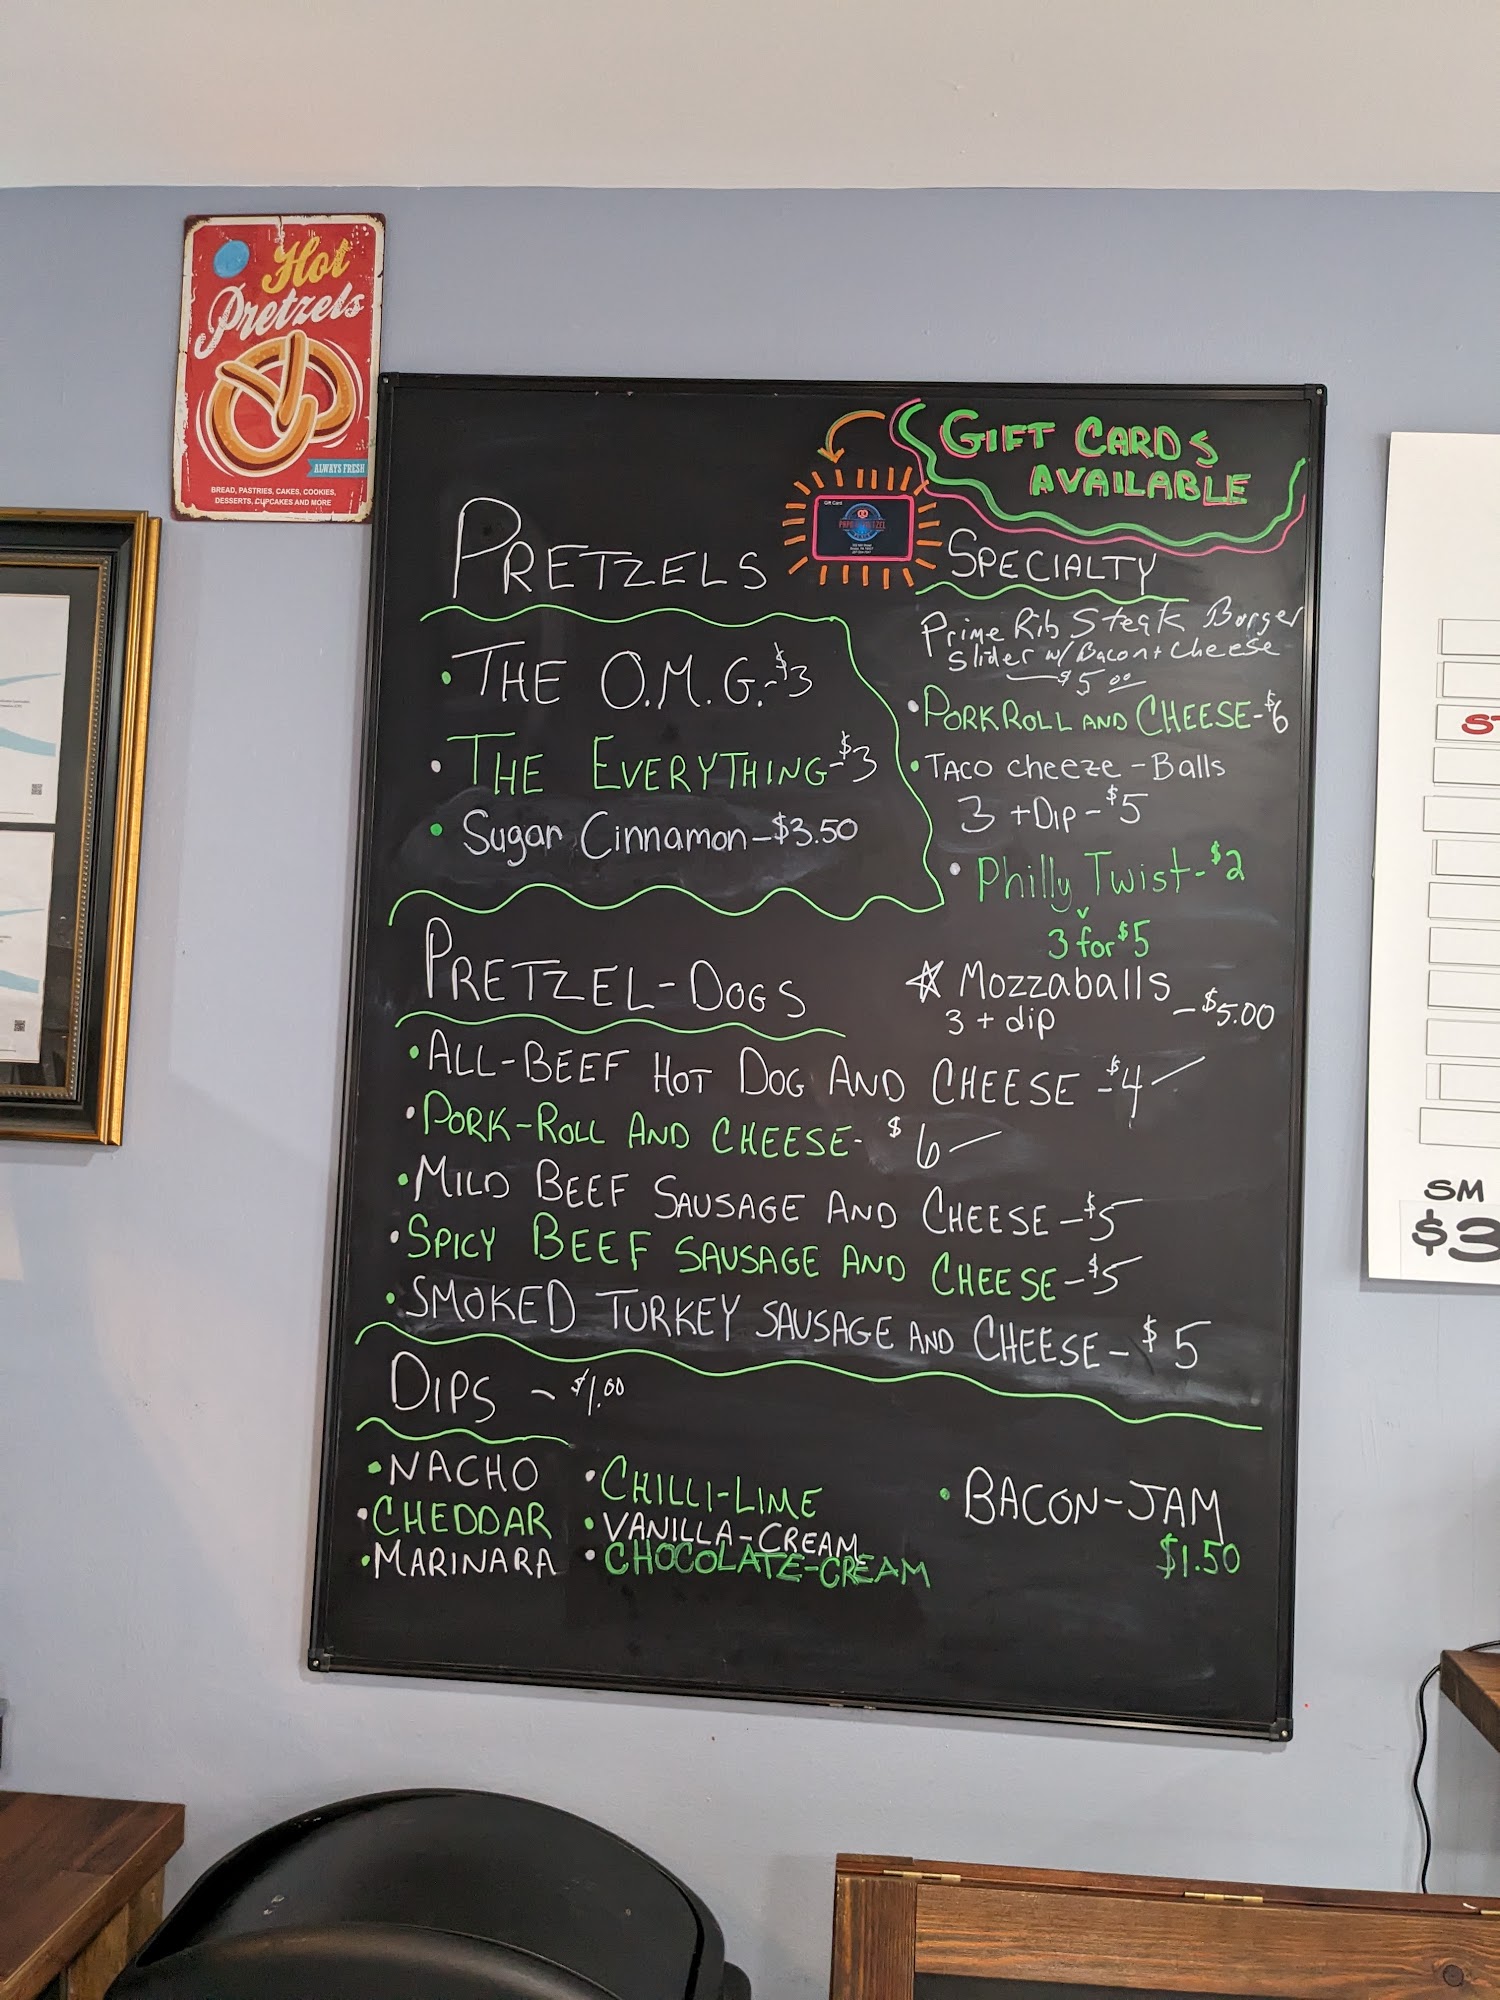 Hot
Pretzels
ALWAYS FRESH
BREAD, PASTRIES, CAKES, COOKIES,
DESSERTS, CUPCAKES AND MORE
GIFT CARDS
AVAILABLE
Gift Card
PRETZELS
• THE O.M.G.-$3
• THE EVERYTHING-$3
• Sugar Cinnamon-$3.50
SPECIALTY
Prime Rib Steak Burger
Slider w/ Bacon + cheese
$5.00
• PORK ROLL AND CHEESE-$6
• TACO cheeze-Balls
3 +Dip-$5
• Philly Twist-$2
3 for $5
Mozzaballs
3 + dip -$5.00
PRETZEL-DOGS
• ALL-BEEF HOT DOG AND CHEESE -$4
• PORK-ROLL AND CHEESE- $6
• MILD BEEF SAUSAGE AND CHEESE-$5
• SPICY BEEF SAUSAGE AND CHEESE-$5
• SMOKED TURKEY SAUSAGE AND CHEESE-$5
DIPS - $1.00
• NACHO
• CHEDDAR
• MARINARA
• CHILLI-LIME
• VANILLA-CREAM
• CHOCOLATE-CREAM
• BACON-JAM
$1.50
ST
SM
$3